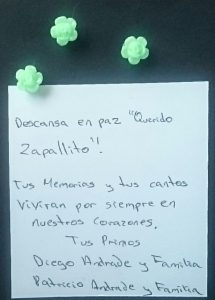 Descansa en paz "Querido
Zapallito"!
Tus Memorias y tus cantos
Viviran por siempre en
nuestros corazones.
Tus Primos
Diego Andrade y Familia
Patricio Andrade y Familia